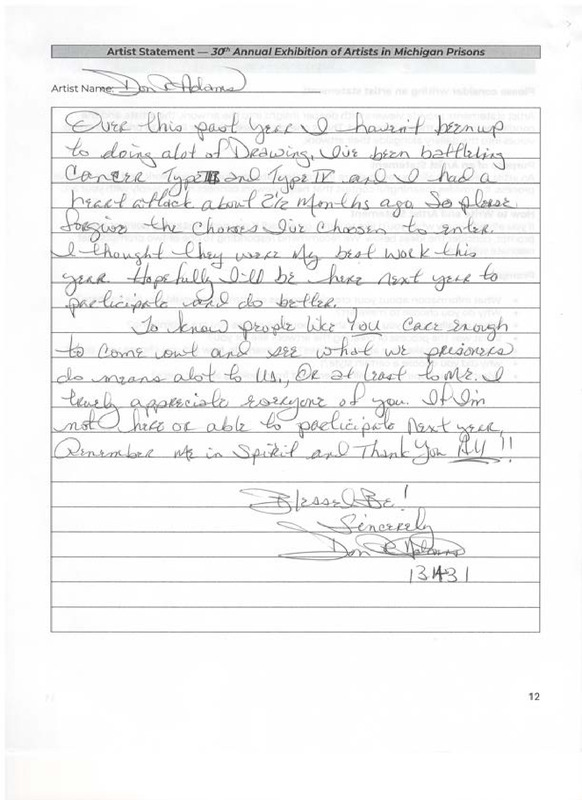 Artist Statement — 30th Annual Exhibition of Artists in Michigan Prisons
Artist Name: Don R Adams
Over this past year I haven't been up
to doing alot of Drawing. I've been battleing
Cancer Type III and Type IV and I had a
heart attack about 2½ months ago. So please
forgive the choices I've choosen to enter.
I thought they were my best work this
year. Hopefully I'll be here next year to
participate and do better.
To know people like You care enough
to come out and see what we prisoners
do means alot to us., Or at least to me. I
truely appreciate everyone of you. If I'm
not here or able to participate next year,
Remember me in Spirit and Thank You All!!
Blessed Be!
Sincerely
Don R Adams
131431
12